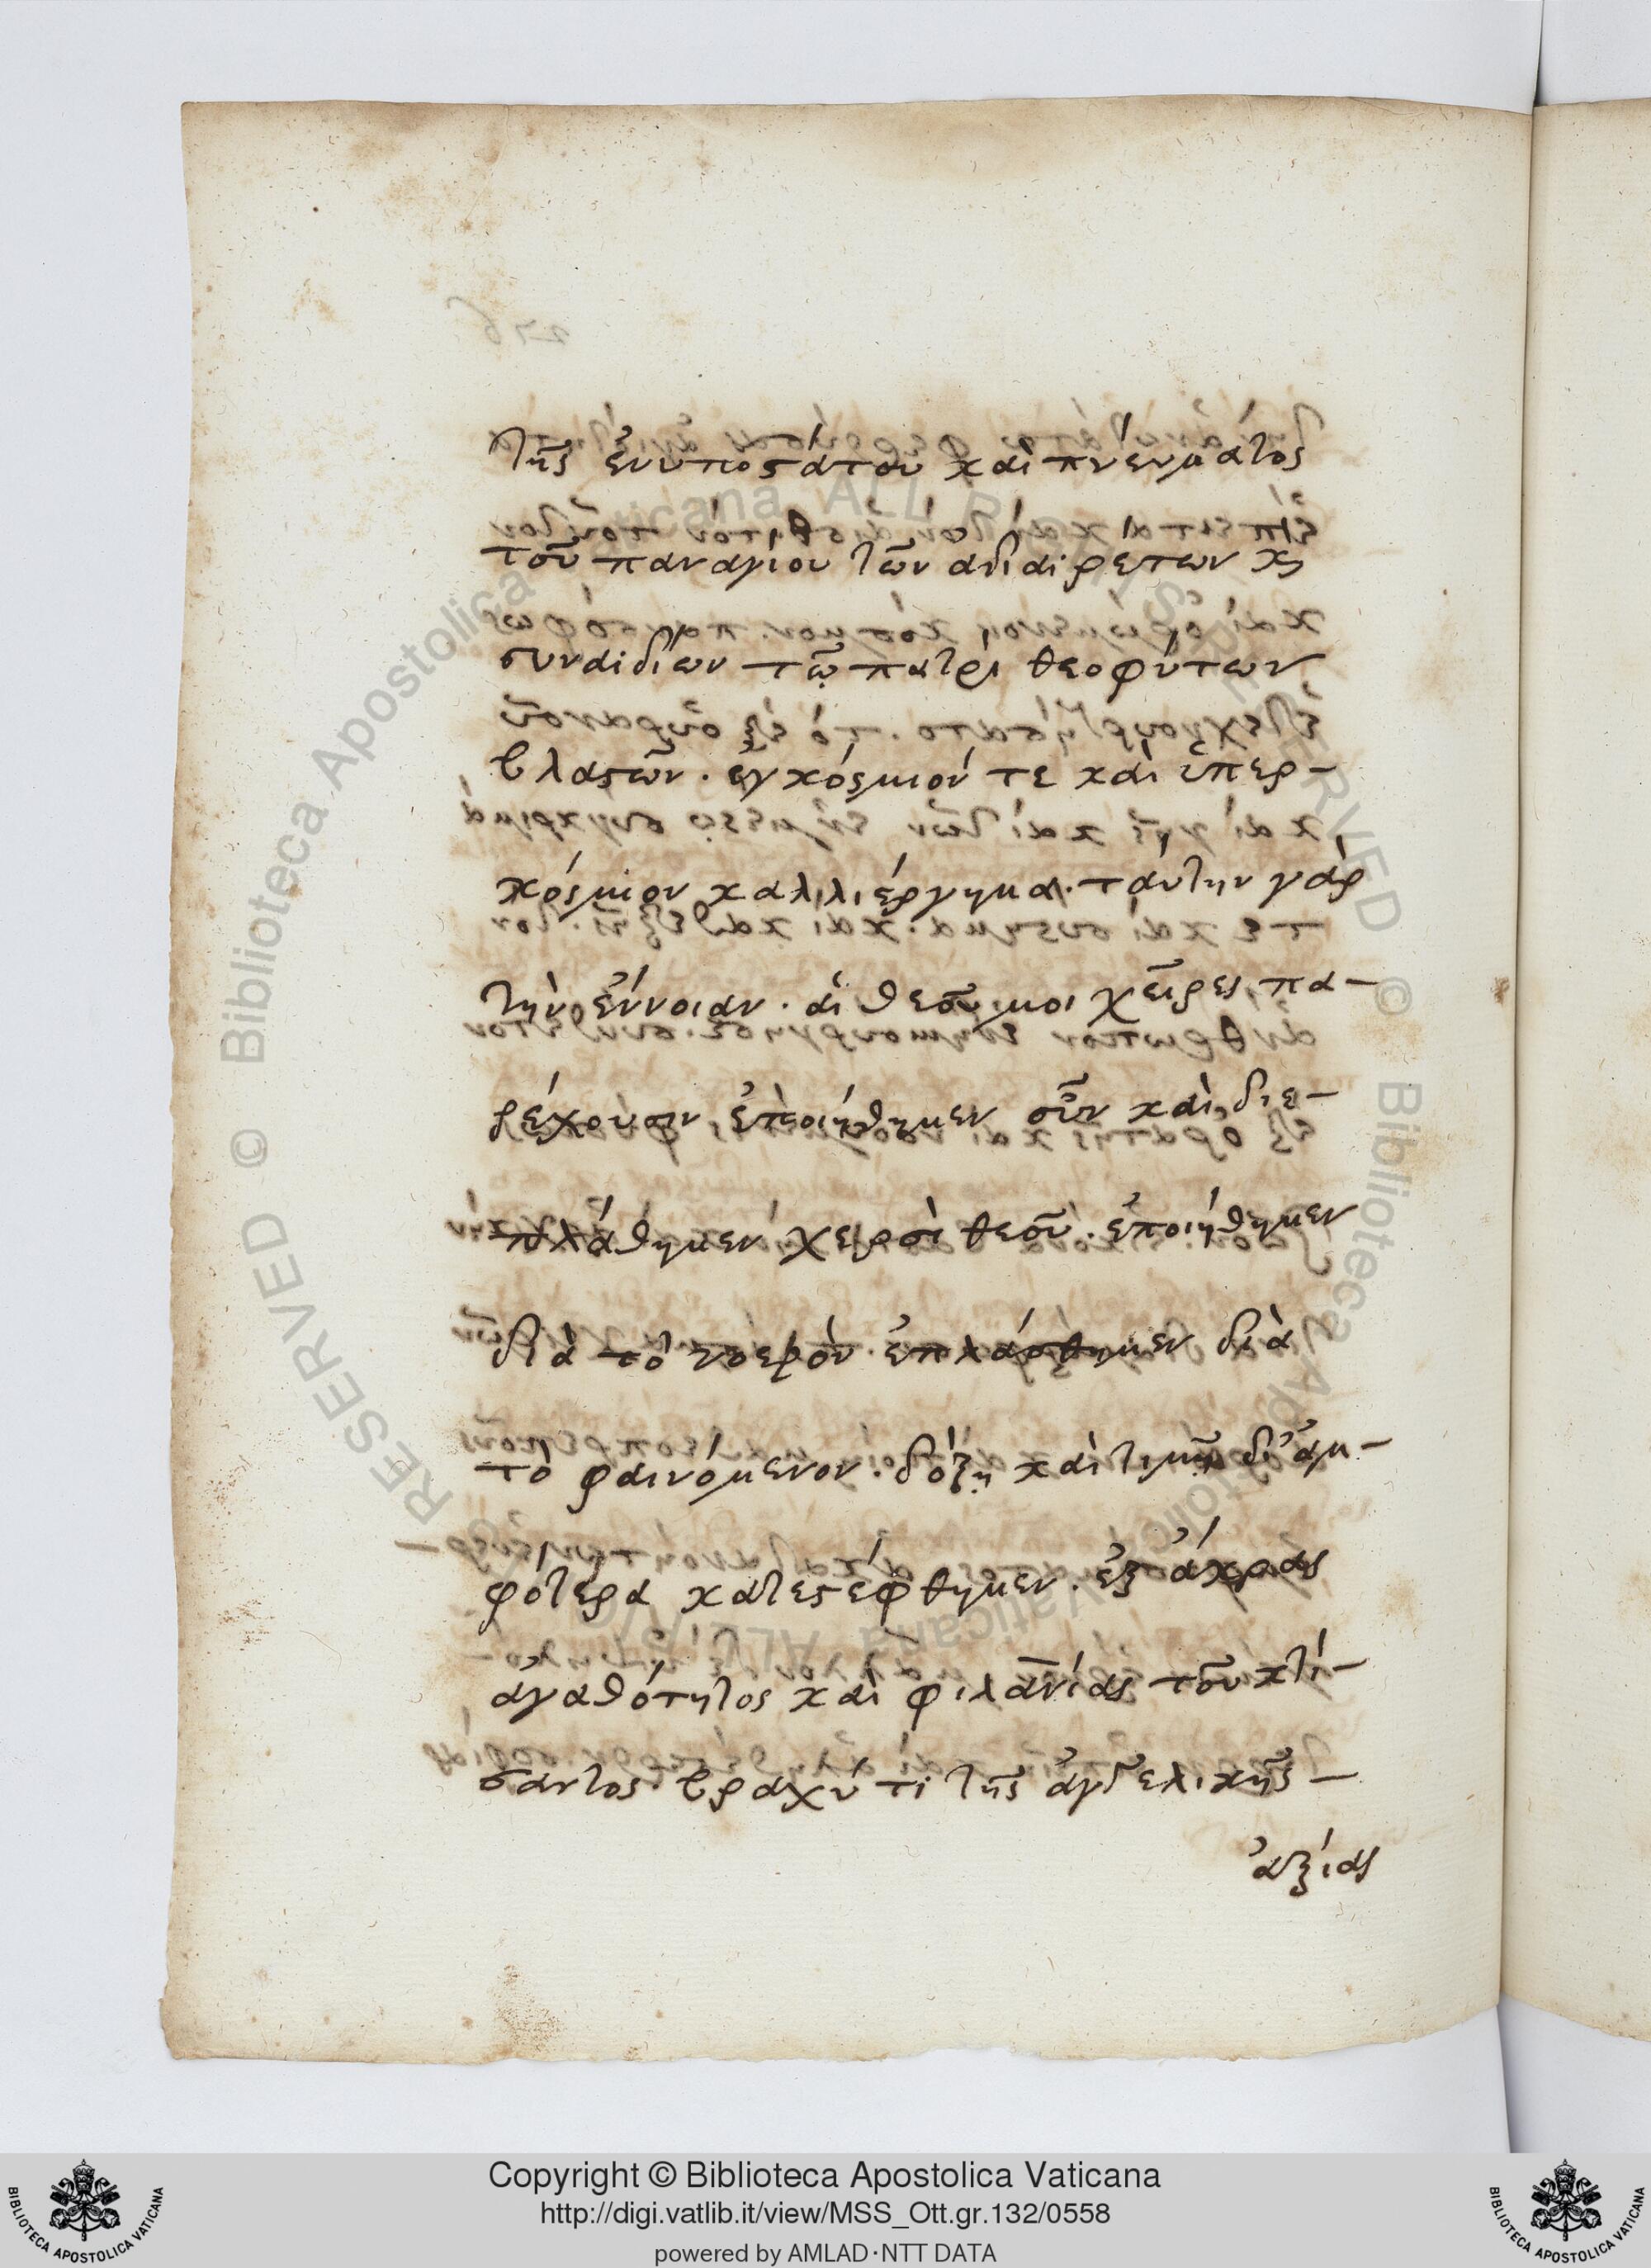 τῆς ἐνυποστάτου καὶ πνεύματος
τοῦ παναγίου τῶν ἀδιαιρέτων κ
συναϊδίων τῶ πατρὶ θεοφύτων
βλαστῶν. ἐγκόσμιόν τε καὶ ὑπερ-
κόσμιον καλλιέργημα. ταύτην γὰρ
τὴν ἔννοιαν. αἱ θεοῦ μοι χεῖρες πα-
ρέχουσιν ἐποιήθημεν οὖν καὶ διε-
πλάθημεν χερσὶ θεοῦ. ἐποιήθημεν
διὰ τὸ νοερὸν. ἐπλάσθημεν διὰ
τὸ φαινόμενον. δόξῃ καὶ τιμῇ δι' ἀμ-
φότερα κατεστέφθημεν. ἐξ ἄκρας
ἀγαθότητος καὶ φιλανίας τοῦ κτί-
σαντος. βραχύ τι τῆς ἀγγελικῆς -
ἀξίας
Copyright © Biblioteca Apostolica Vaticana
http://digi.vatlib.it/view/MSS_Ott.gr.132/0558
powered by AMLAD·NTT DATA
BIBLIOTECA APOSTOLICA VATICANA
BIBLIOTECA APOSTOLICA VATICANA